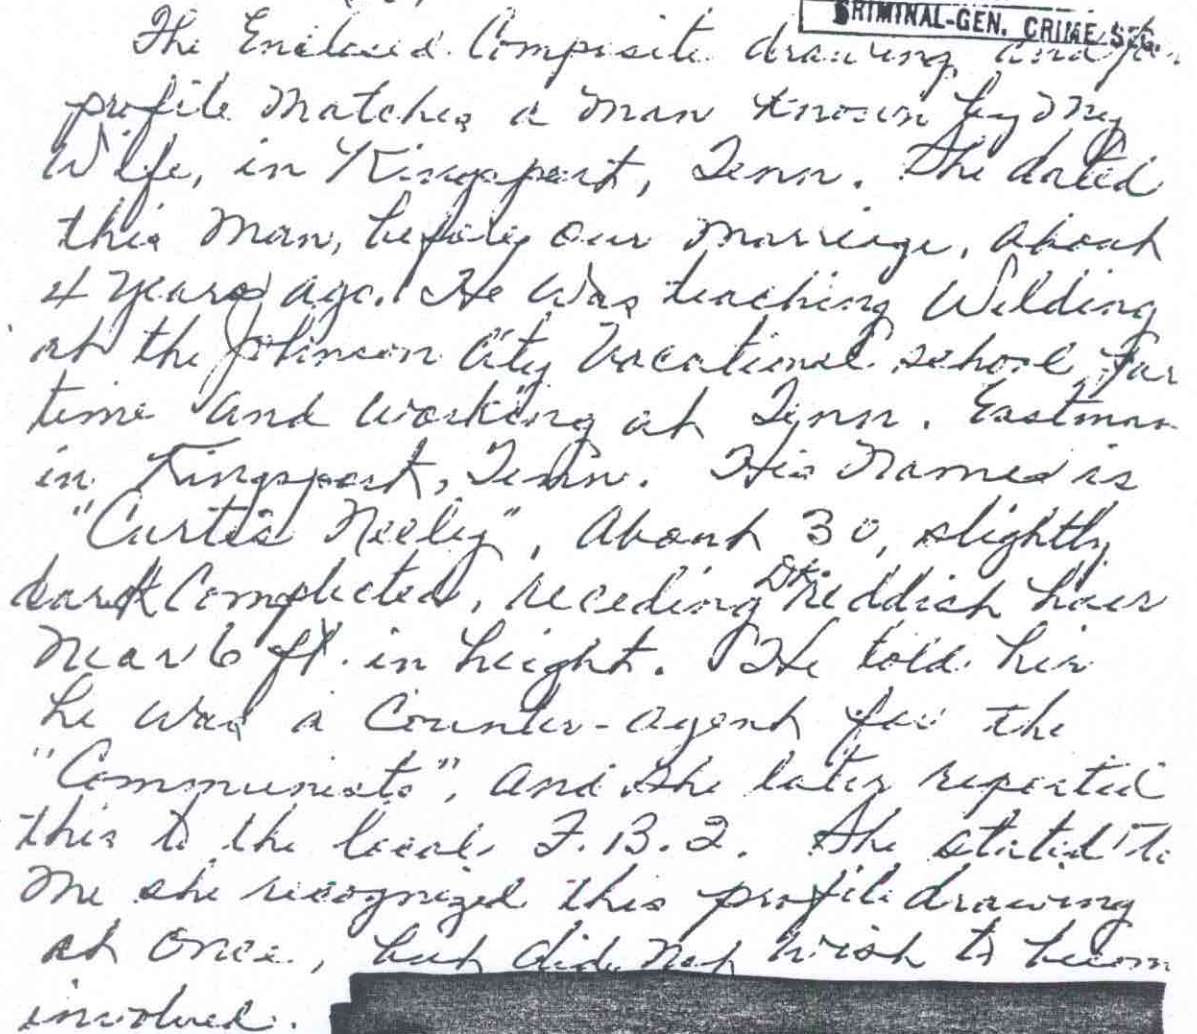 CRIMINAL-GEN. CRIME SEC.
The Enclosed Composite drawing and
profile Matches a Man Known by My
Wife, in Kingsport, Tenn. She dated
this Man, before our Marriage, About
4 Years ago. He was teaching Welding
at the Johnson City Vocational school
time and working at Tenn. Eastman
in Kingsport, Tenn. His Name is
"Curtis Neely", About 30, slightly
dark Complected, receding Dk reddish hair
Near 6 ft. in height. He told her
he was a Counter-agent for the
"Communists", and she later reported
this to the local F.B.I. She stated to
Me she recognized this profile drawing
at once, but did Not wish to becom
involved.